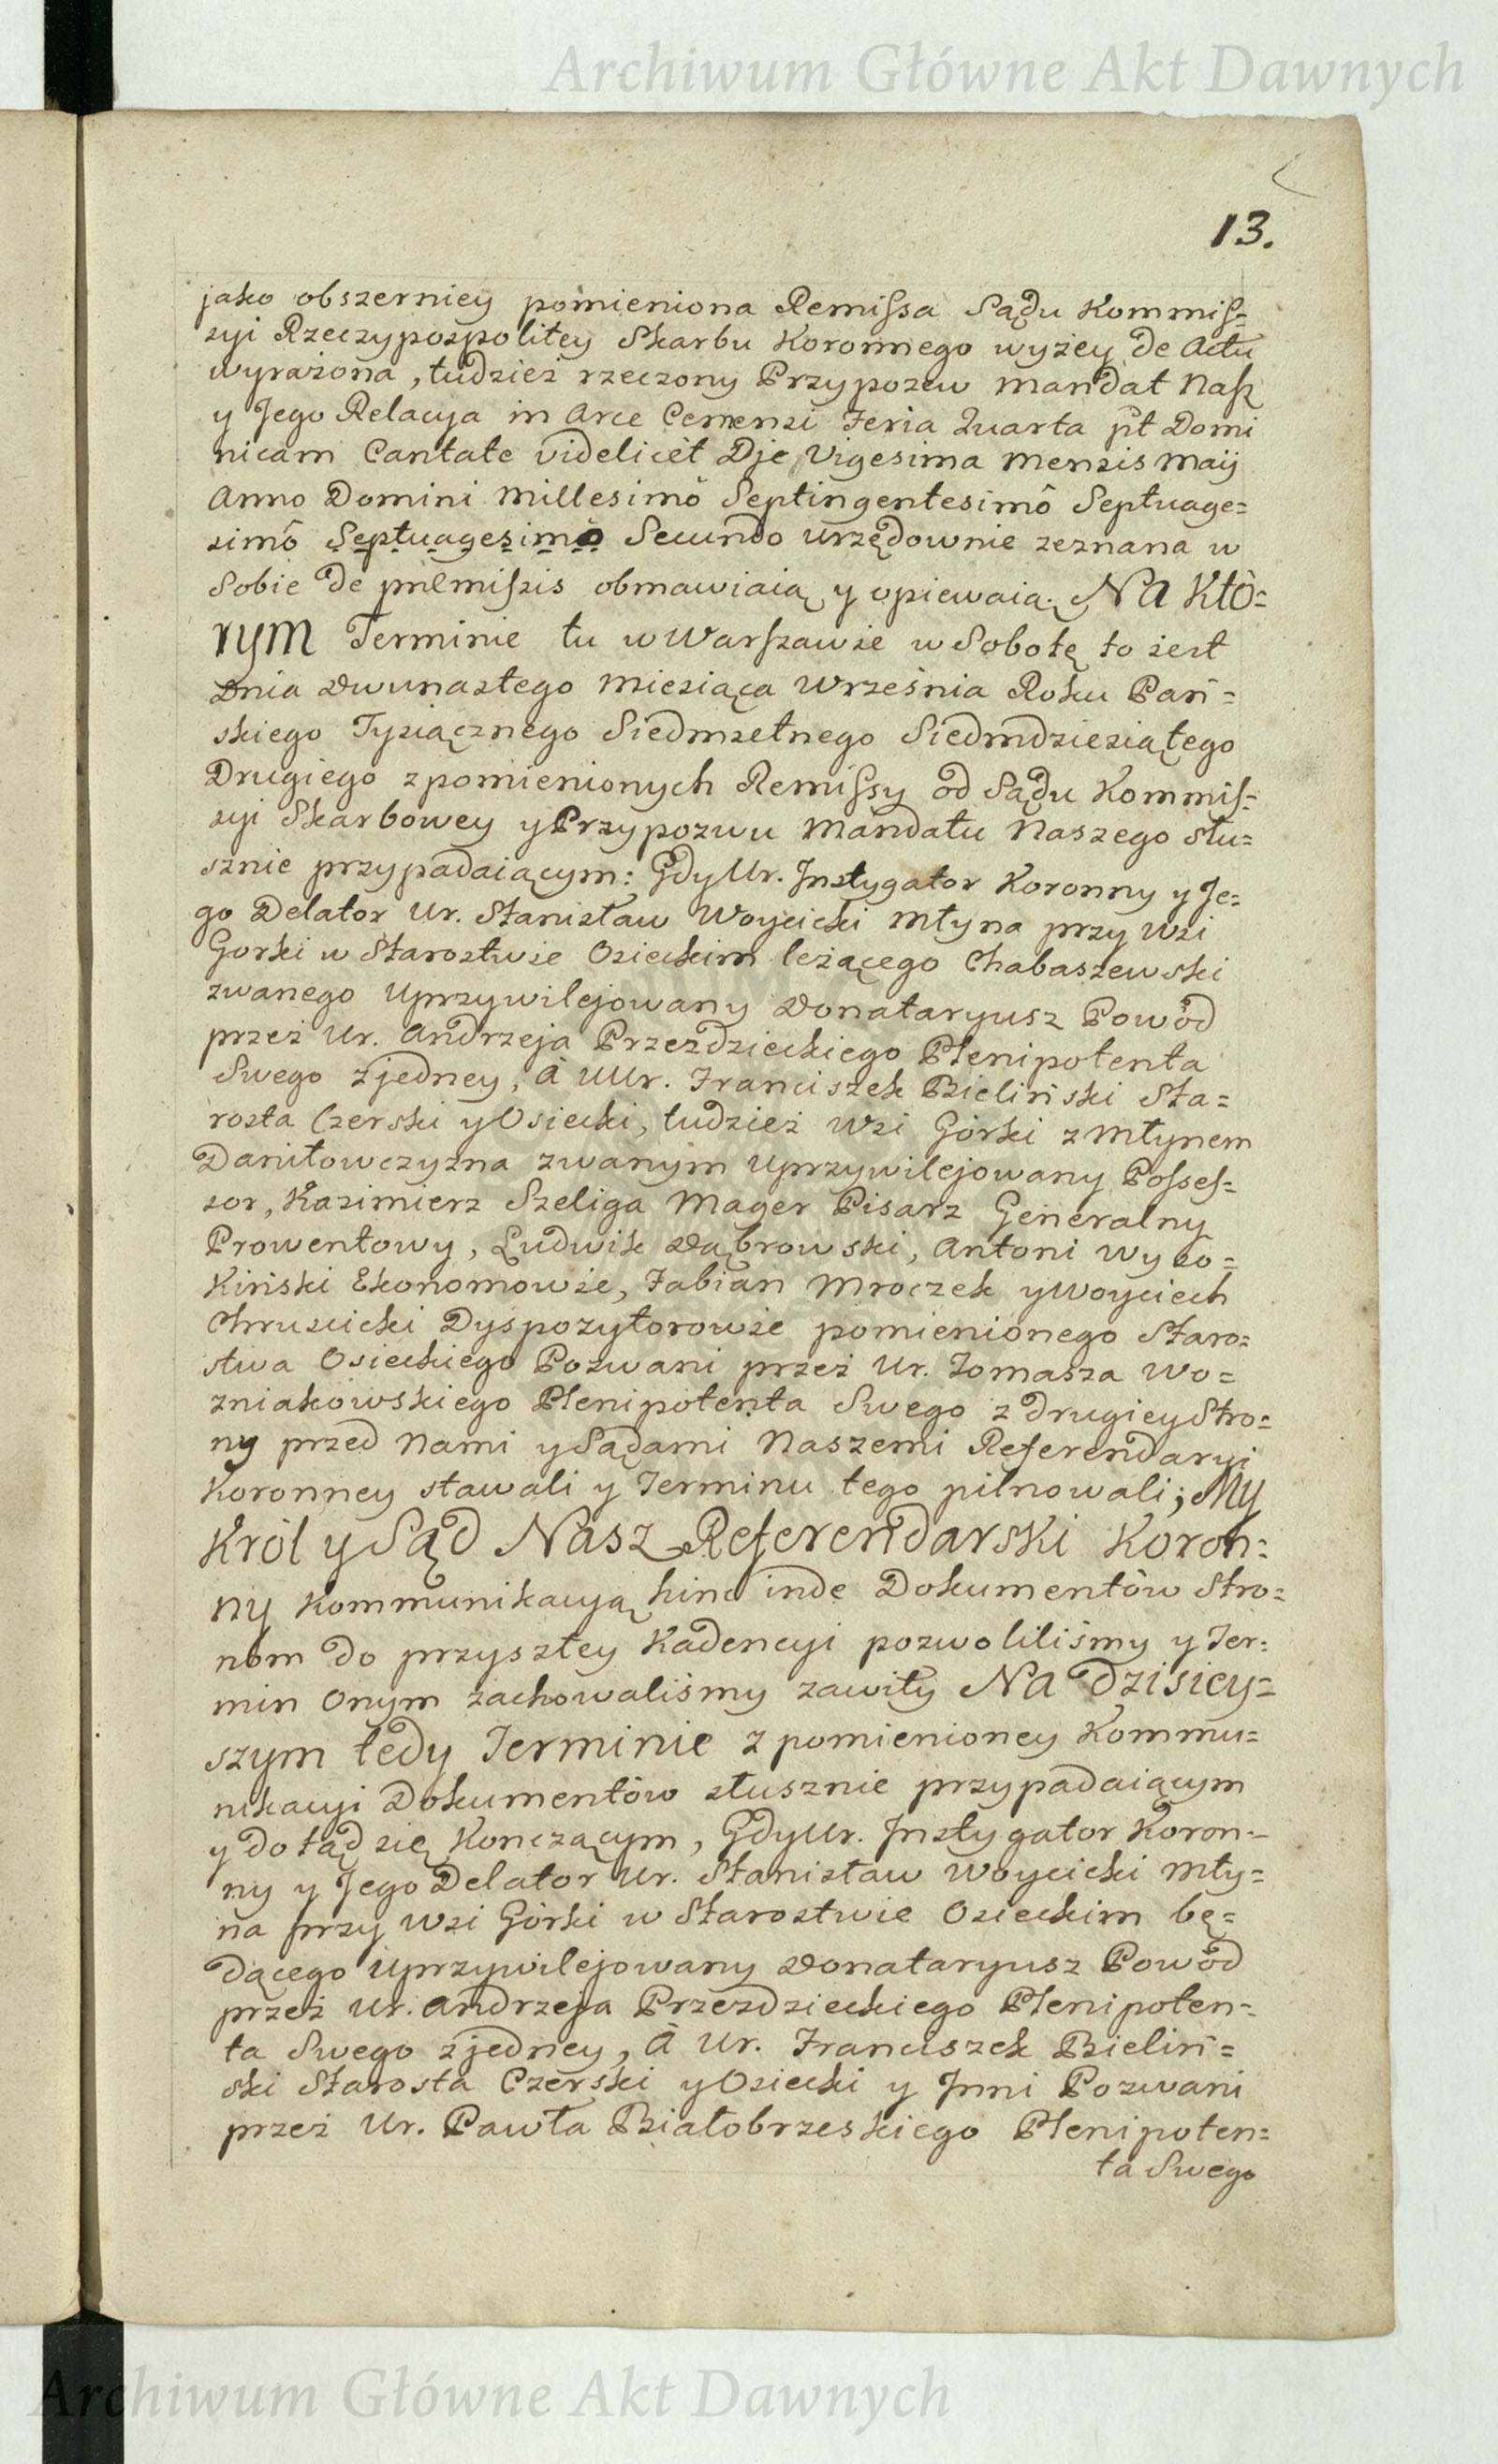 Archiwum Główne Akt Dawnych
13.
jako obszerniey pomieniona Remissa Sądu Kommis=
syi Rzeczypospolitey Skarbu Koronnego wyżey de Actu
wyrażona, tudzież rzeczony Przypozew Mandat Nasz
y Jego Relacya in Arce Cernensi Feria Quarta pt Domi
nicam Cantate videlicèt Die Vigesima Mensis Maij
Anno Domini Millesimô Septingentesimô Septuage=
simô Septuagesimô Secundo urzędownie zeznana w
Sobie de præmissis obmawiaią y opiewaią. Na Któ=
rym Terminie tu w Warszawie w Sobotę to iest
Dnia Dwunastego Miesiąca Września Roku Pań=
skiego Tysiącznego Siedmsetnego Siedmdziesiątego
Drugiego z pomienionych Remissy od Sądu Kommis=
syi Skarbowey y Przypozwu Mandatu Naszego słu=
sznie przypadaiącym: Gdy Ur. Instygator Koronny y Je=
go Delator Ur. Stanisław Woycicki Młyna przy Wsi
Gorki w Starostwie Osieckim leżącego Chabaszewski
zwanego Uprzywilejowany Donataryusz Powód
przez Ur. Andrzeja Przezdzieckiego Plenipotenta
Swego z jedney, à UUr. Franciszek Bieliński Sta=
rosta Czerski y Osiecki, tudzież Wsi Górki z Młynem
Daniłowczyzna zwanym Uprzywilejowany Posses=
sor, Kazimierz Szeliga Mager Pisarz Generalny
Prowentowy, Ludwik Dąbrowski, Antoni Wyso=
Kiński Ekonomowie, Fabian Mroczek y Woyciech
Chruscicki Dyspozytorowie pomienionego Staro=
stwa Osieckiego Pozwani przez Ur. Tomasza Wo=
zniakowskiego Plenipotenta Swego z drugiey Stro=
ny przed Nami y Sądami Naszemi Referendaryi
Koronney stawali y Terminu tego pilnowali; My
Król y Sąd Nasz Referendarski Koron=
ny Kommunikacyą hinc inde Dokumentów Stro=
nom do przyszłey Kadencyi pozwoliliśmy y Ter=
min Onym zachowaliśmy zawity Na Dzisiey=
szym tedy Terminie z pomienioney Kommu=
nikacyi Dokumentów słusznie przypadaiącym
y do tąd się Konczącym, Gdy Ur. Instygator Koron=
ny y Jego Delator Ur. Stanisław Woycicki Mły=
na przy Wsi Górki w Starostwie Osieckim bę=
dącego Uprzywilejowany Donataryusz Powód
przez Ur. Andrzeja Przezdzieckiego Plenipoten=
ta Swego z jedney, à Ur. Franciszek Bieliń=
ski Starosta Czerski y Osiecki y Inni Pozwani
przez Ur. Pawła Białobrzeskiego Plenipoten=
ta Swego
Archiwum Główne Akt Dawnych